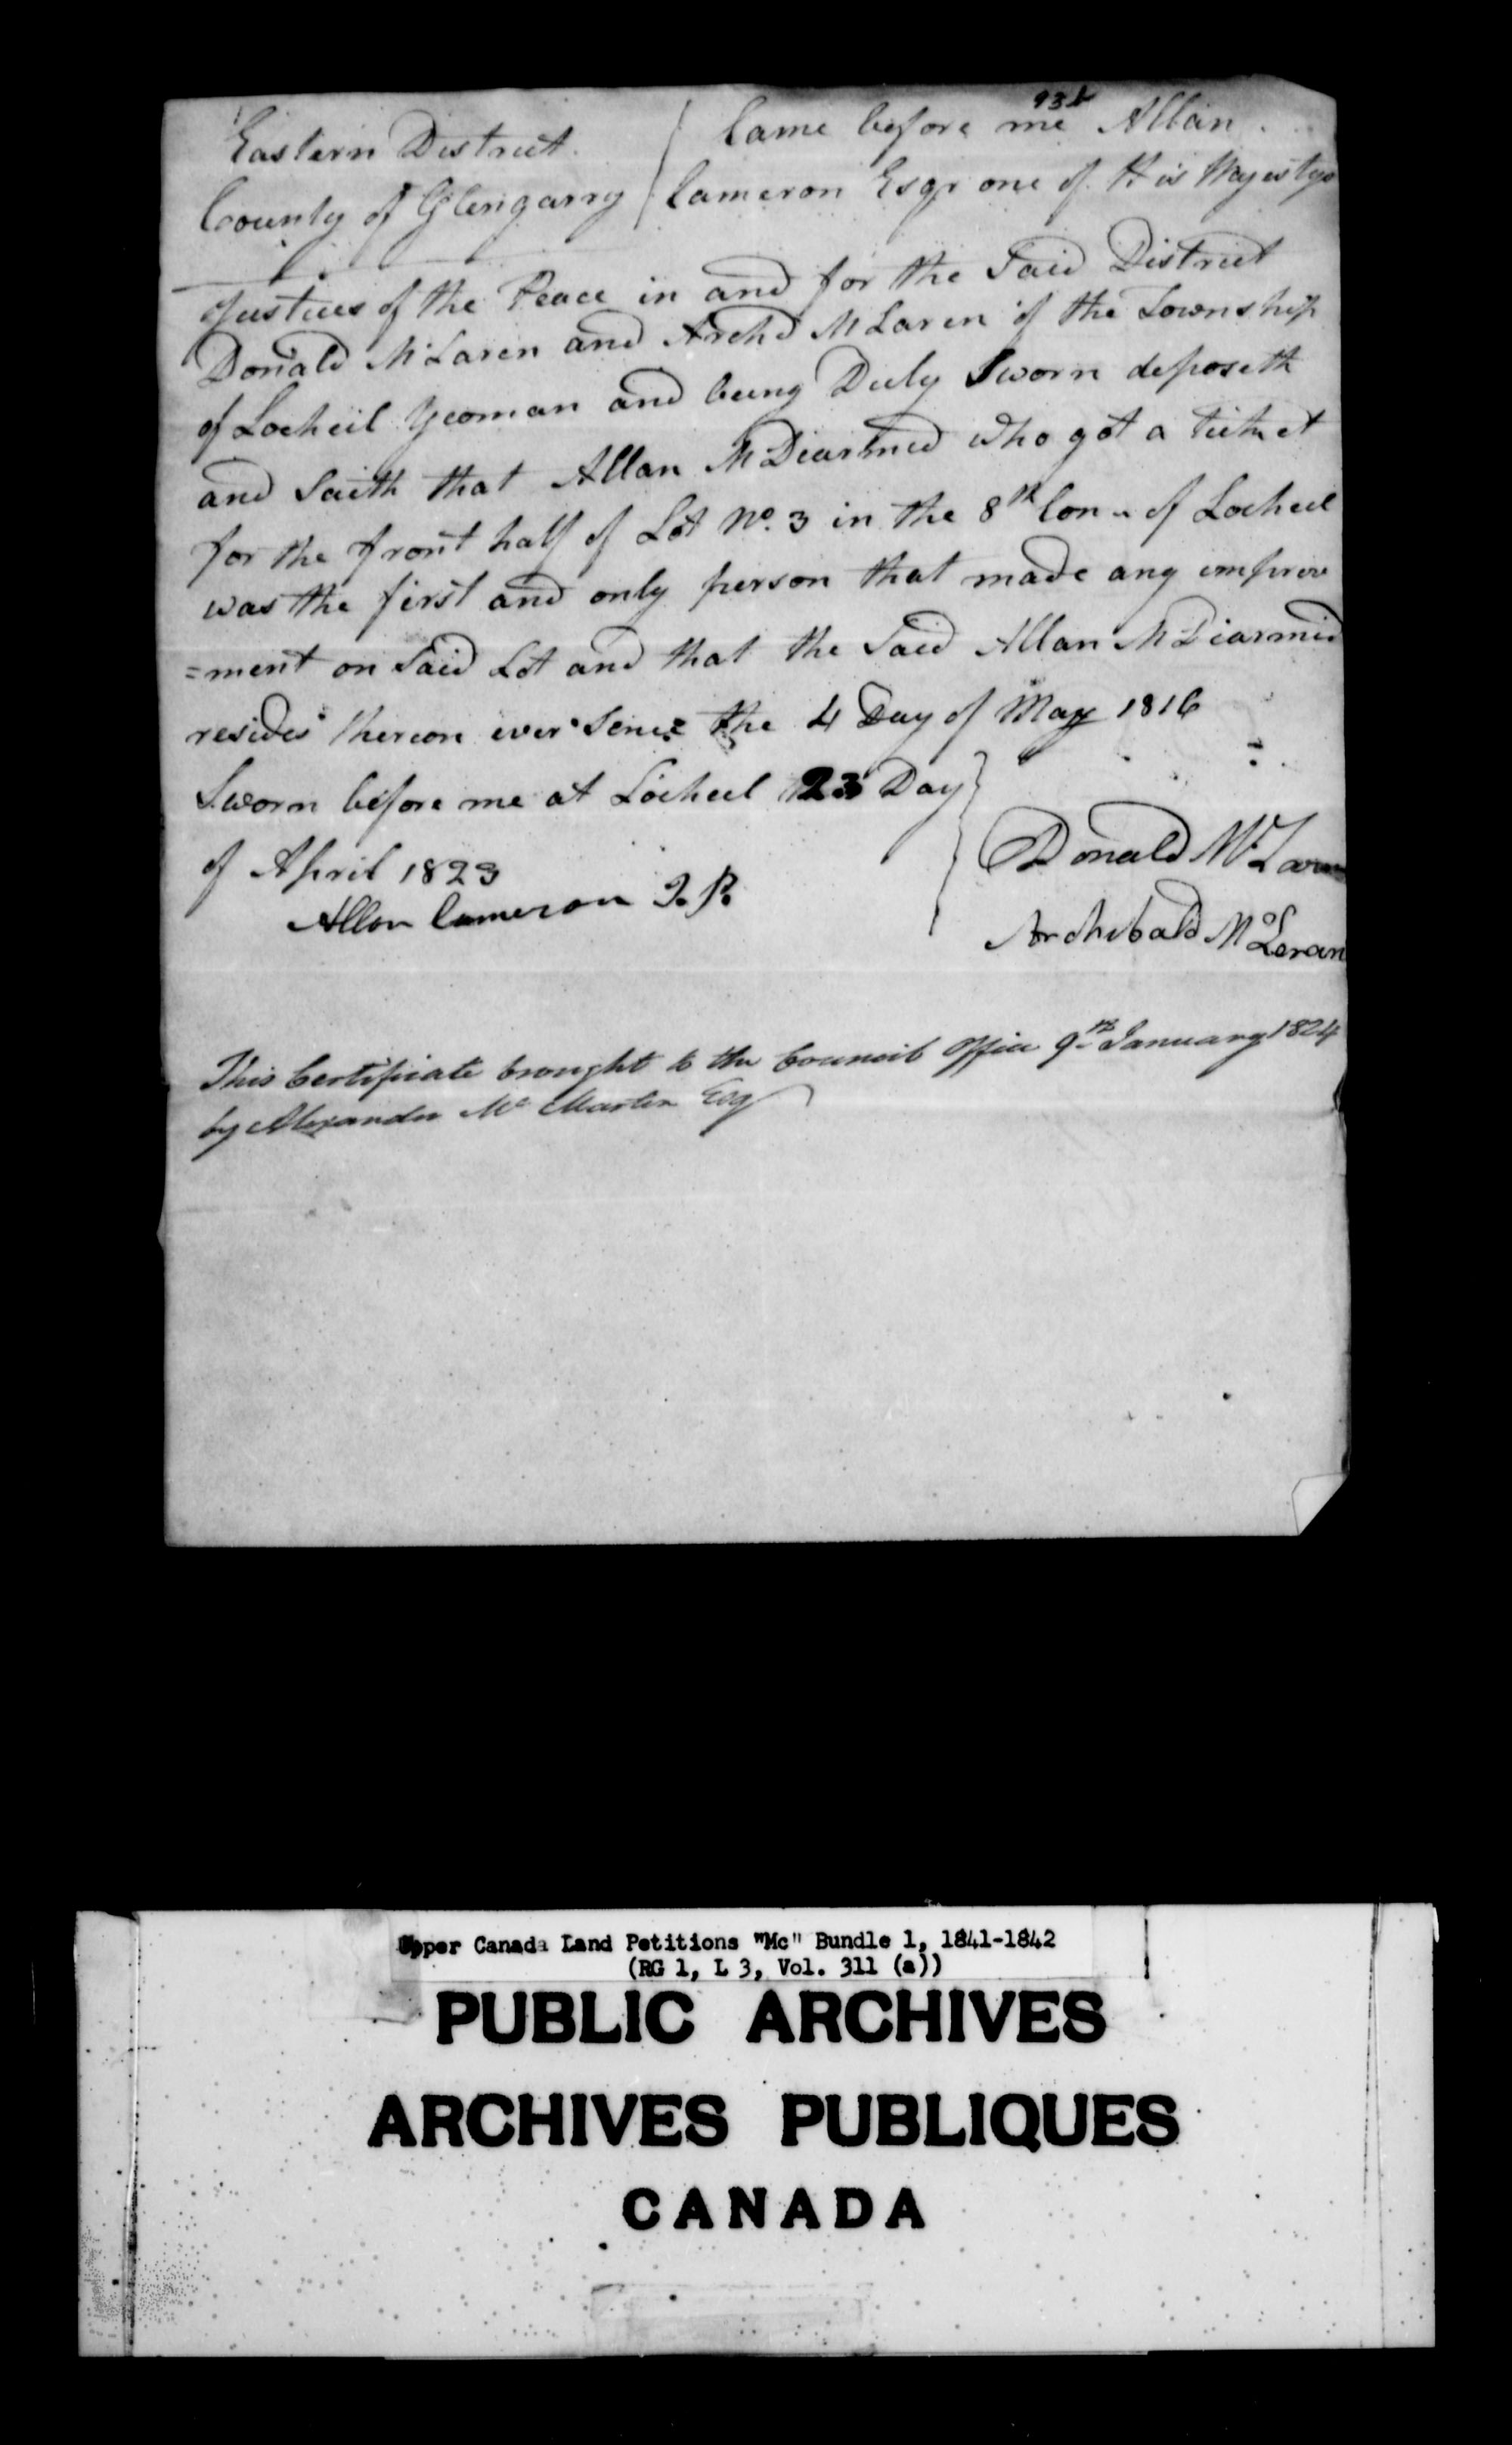 93b
Eastern District
County of Glengarry
Came before me Allan
Cameron Esqr one of His Majestys
Justices of the Peace in and for the Said District
Donald McLaren and Archd McLaren of the Township
of Locheil Yeoman and being Duly Sworn deposeth
and Saith that Allan McDiarmid who got a Ticket
for the front half of Lot No. 3 in the 8th Con - of Locheil
was the first and only person that made any improve
=ment on Said Lot and that the Said Allan McDiarmid
resides thereon ever Since the 4 Day of May 1816
Sworn before me at Locheil 23 Day
of April 1823
Allan Cameron J.P.
Donald McLaren
Archibald McLeran
This Certificate brought to the Council Office 9th January 1824
by Alexander Mc Martin Esq
Upper Canada Land Petitions "Mc" Bundle 1, 1841-1842
(RG 1, L 3, Vol. 311 (a))
PUBLIC ARCHIVES
ARCHIVES PUBLIQUES
CANADA